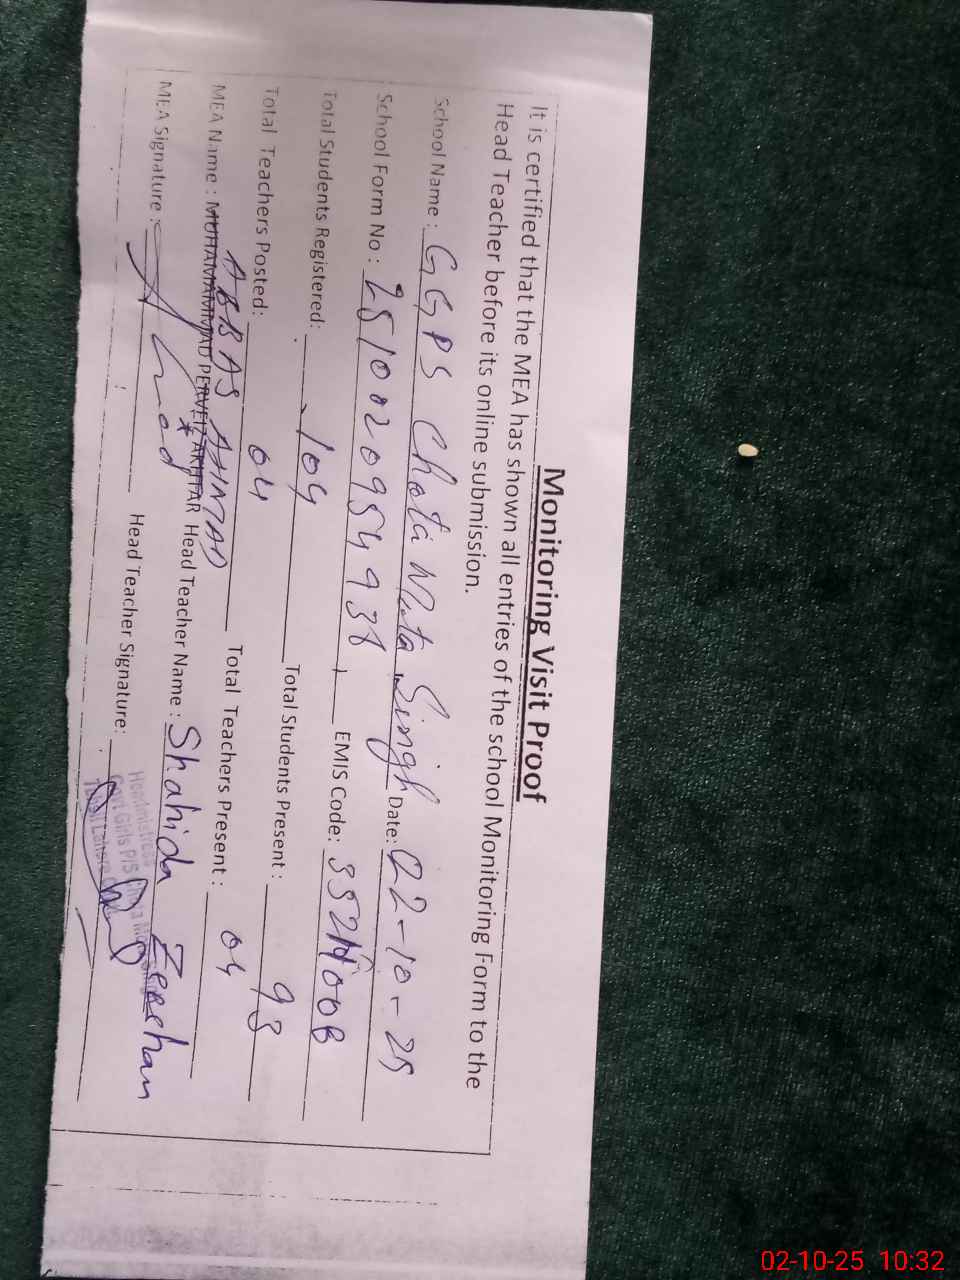 Monitoring Visit Proof
It is certified that the MEA has shown all entries of the school Monitoring Form to the
Head Teacher before its online submission.
School Name : GGPS Chota Mota Singh Date: 02-10-25
School Form No : 251002095493 EMIS Code:
Total Students Registered: 109 Total Students Present : 93
Total Teachers Posted: 04 Total Teachers Present : 04
ABBAS AHMAD
MEA Name : MUHAMMMAD PERVEIZ AKHTAR Head Teacher Name : Shahida Zeeshan
MEA Signature : Head Teacher Signature:
Headmistress
Govt Girls P/S
Lahore
02-10-25 10:32